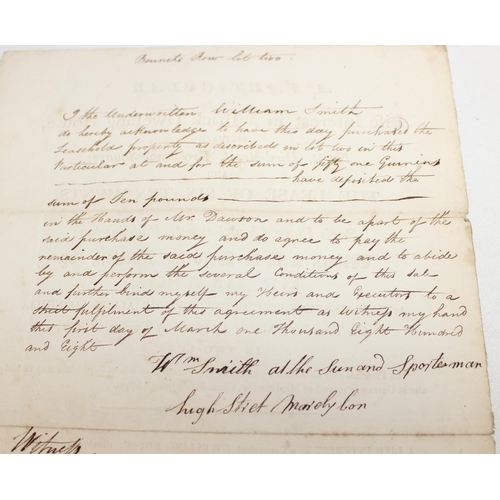 Bennets Row lot two.
I the Underwritten William Smith
do hereby acknowledge to have this day purchased the
Leasehold property as described in lot two in this
Particular at and for the sum of fifty one Guineas
have deposited the
sum of Ten pounds
in the Hands of Mr Dawson and to be apart of the
said purchase money and do agree to pay the
remainder of the said purchase money and to abide
by and perform the several Conditions of this sale
and further bind myself my Heirs and Executors to a
strict fulfilment of this agreement as Witness my hand
this first day of March one Thousand Eight Hundred
and Eight
Wm Smith at the Sun and Sportsman
high Street Marelybon
Witness